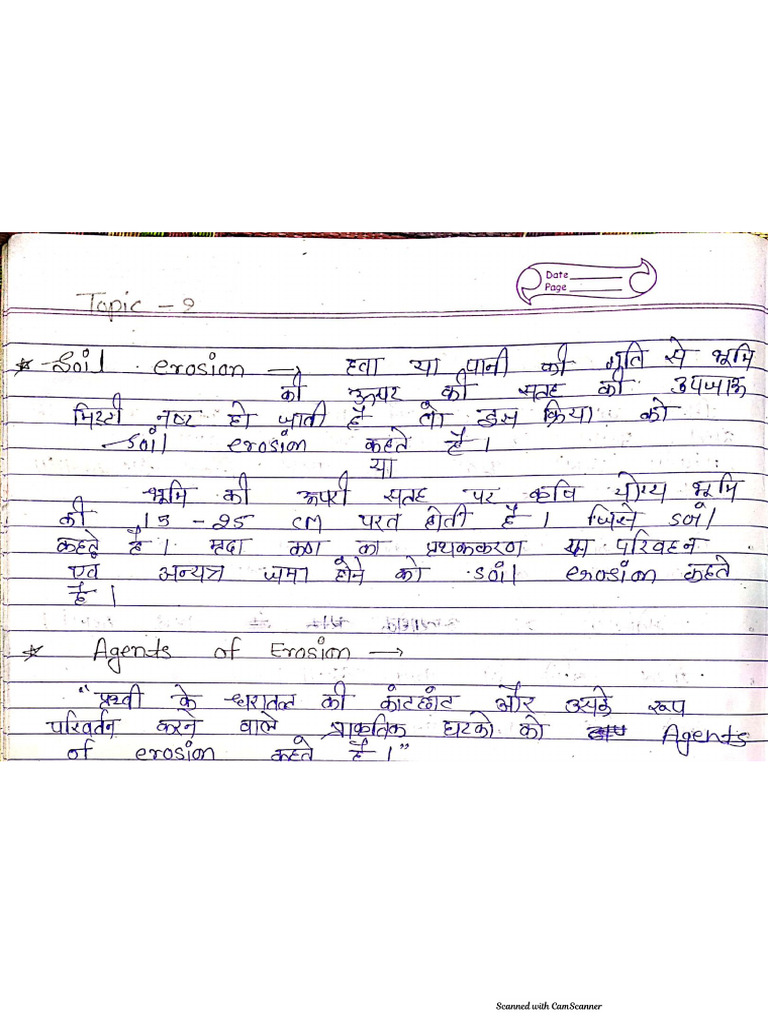 Date
Page
Topic - 2
* Soil erosion → हवा या पानी की गति से भूमि
की ऊपर की सतह की उपजाऊ
मिट्टी नष्ट हो जाती है तो इस क्रिया को
soil erosion कहते है।
या
भूमि की ऊपरी सतह पर कृषि योग्य भूमि
की 15 - 25 cm परत होती है। जिसे soil
कहते है। मृदा कण का प्रथककरण या परिवहन
एवं अन्यत्र जमा होने को soil erosion कहते
है।
* Agents of Erosion →
"पृथ्वी के धरातल की कांटछांट और उसके रूप
परिवर्तन करने वाले प्राकृतिक घटको को Agents
of erosion कहते है।"
Scanned with CamScanner